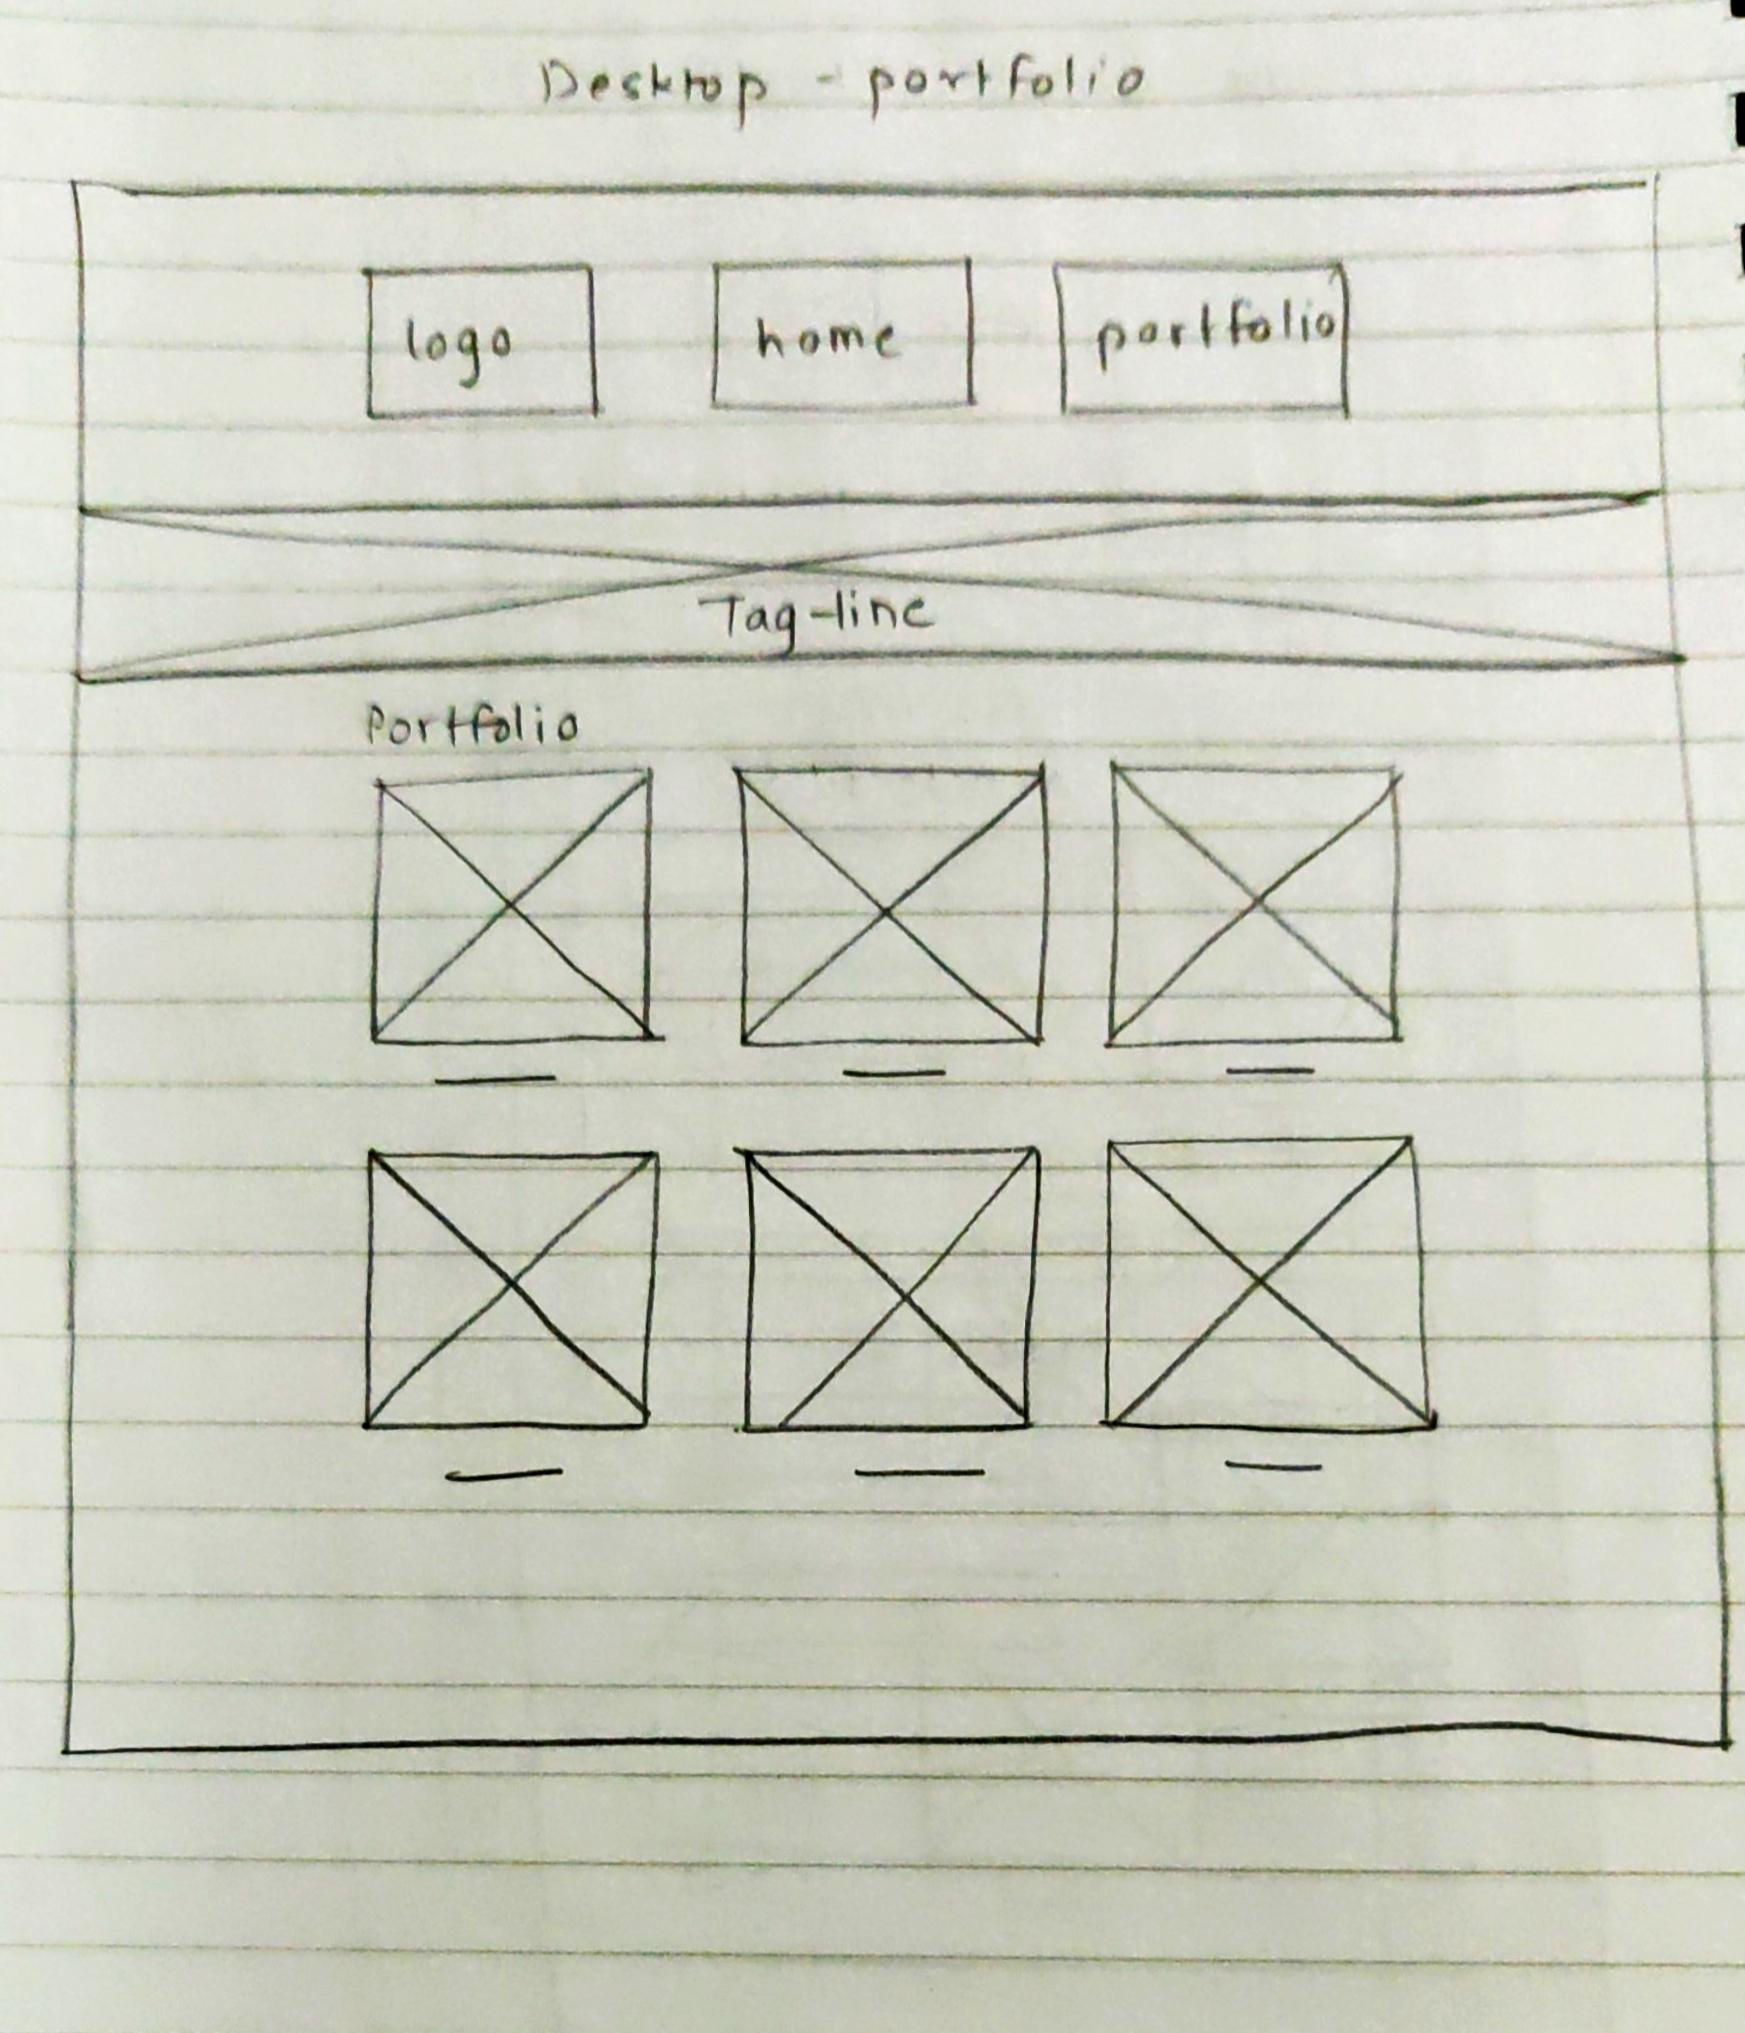 Desktop - portfolio
logo home portfolio
Tag-line
Portfolio